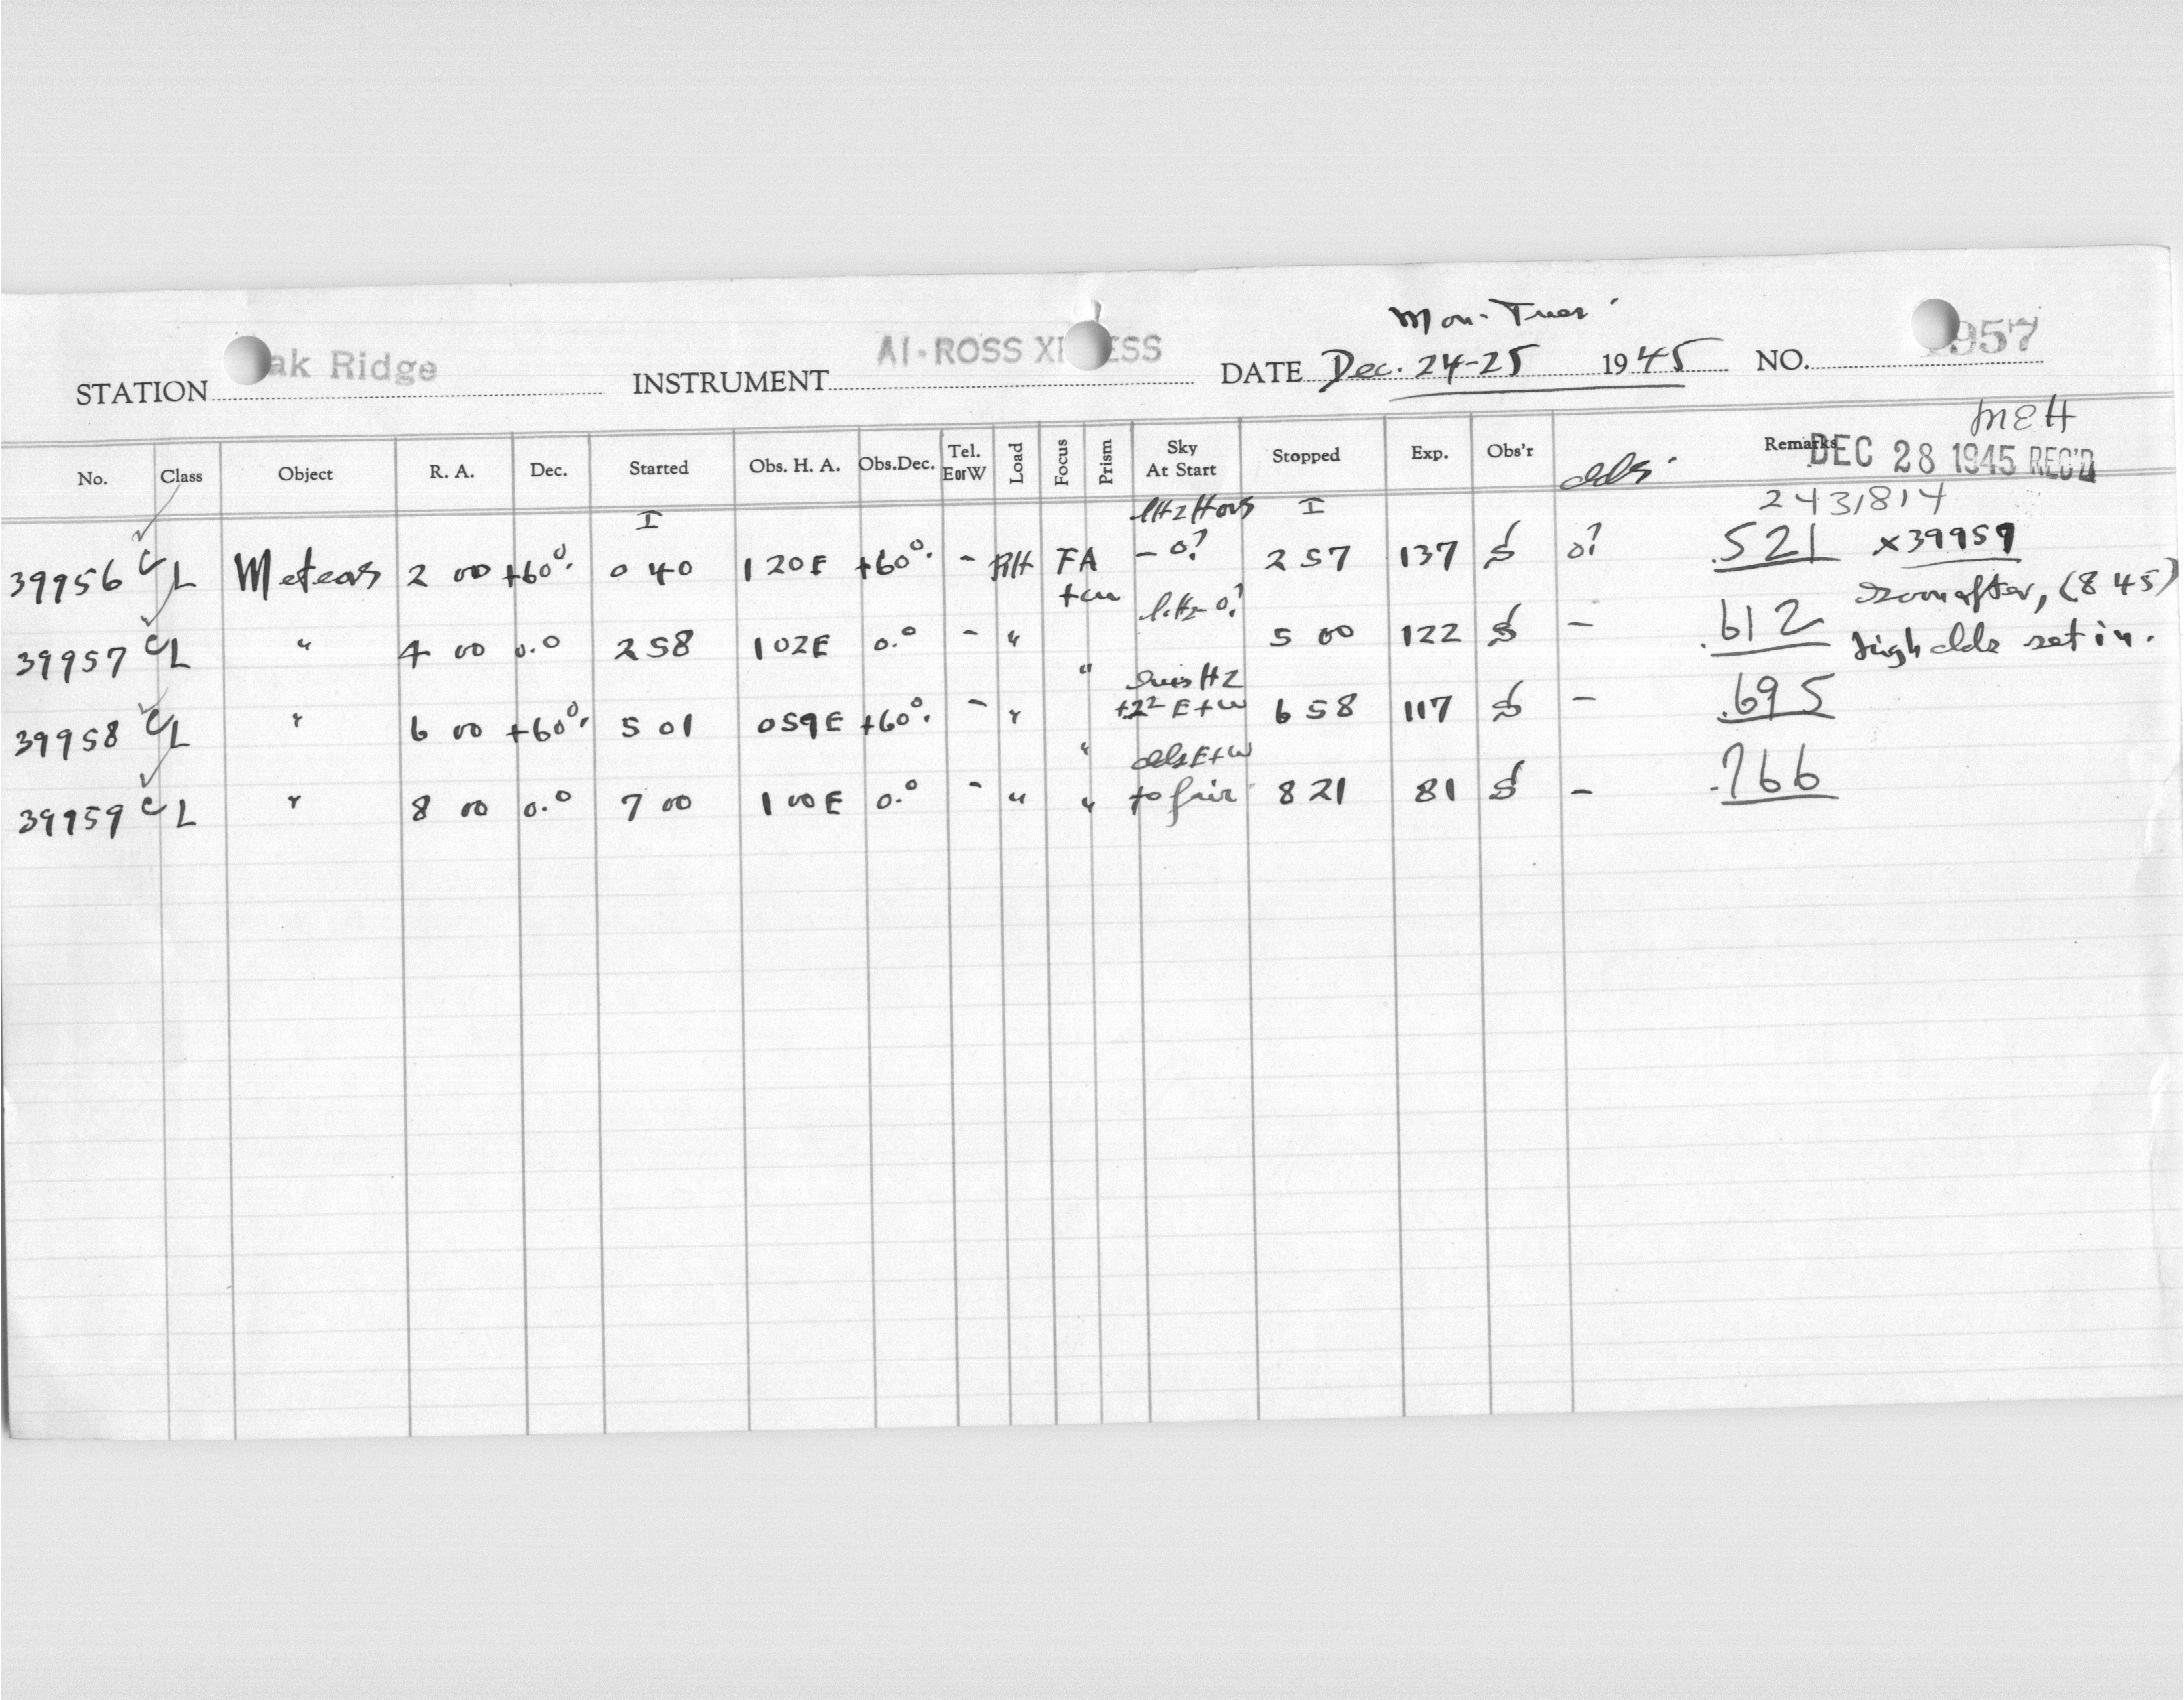 Mon-Tues.
STATION ak Ridge INSTRUMENT AI-ROSS X ESS DATE Dec. 24-25 1945 NO. 1957
MEH
No. Class Object R. A. Dec. Started Obs. H. A. Obs.Dec. Tel. E or W Load Focus Prism Sky At Start Stopped Exp. Obs'r clds. Remarks DEC 28 1945 REC'D
I I 2431814
39956 C L Meteors 2 00 +60°. 0 40 1 20 E +60°. - RH FA - 0? 2 57 137 S 0? .521 x39959
+cu soon after, (8 45)
39957 C L " 4 00 0.° 2 58 1 02 E 0.° - " 5 00 122 S - .612 high clds set in.
" Hz
39958 C L " 6 00 +60°. 5 01 0 59 E +60°. - " E+W 6 58 117 S - .695
" clds E+W
39959 C L " 8 00 0.° 7 00 1 00 E 0.° - " " to fair 8 21 81 S - .766